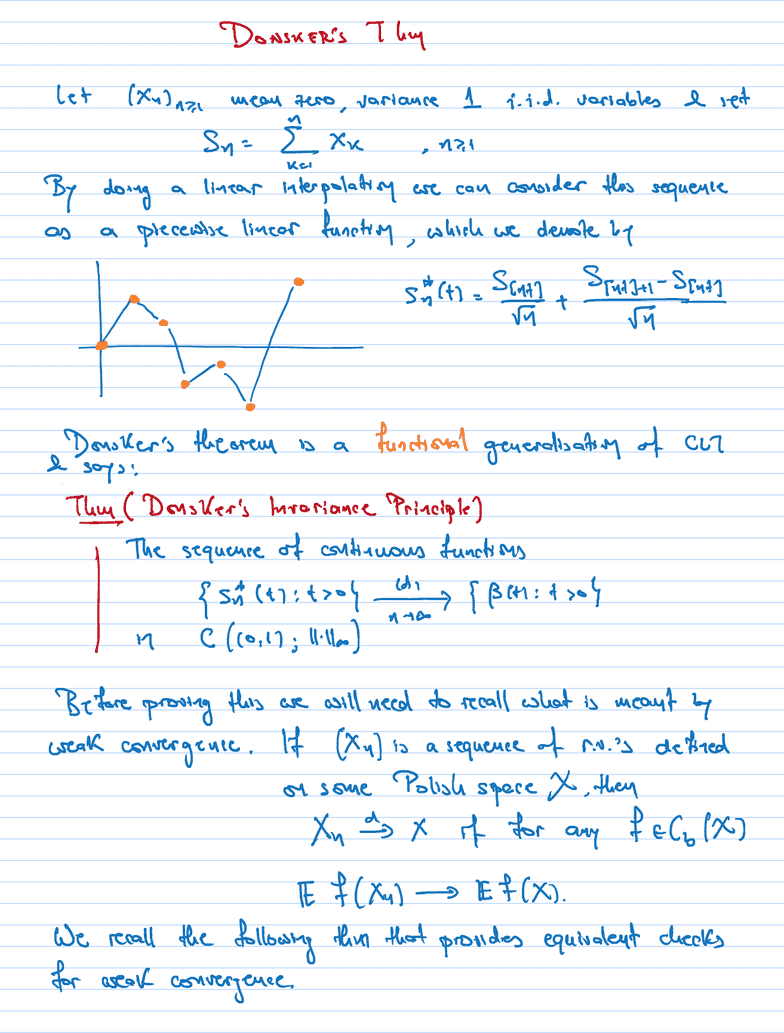 DONSKER'S Thm
Let (Xn)n≥1 mean zero, variance 1 i.i.d. variables & set
Sn = ∑_{k=1}^{n} Xk , n≥1
By doing a linear interpolation we can consider this sequence
as a piecewise linear function, which we denote by
S*n(t) = S[nt]/√n + (S[nt]+1 - S[nt])/√n
Donsker's theorem is a functional generalisation of CLT
& says:
Thm (Donsker's Invariance Principle)
The sequence of continuous functions
{S*n(t): t>0} —(d), n→∞→ {β(t): t>0}
in C((0,1); ||·||∞)
Before proving this we will need to recall what is meant by
weak convergence. If (Xn) is a sequence of r.v.'s defined
on some Polish space X, then
Xn →d X if for any f ∈ Cb(X)
E f(Xn) → E f(X).
We recall the following thm that provides equivalent checks
for weak convergence.